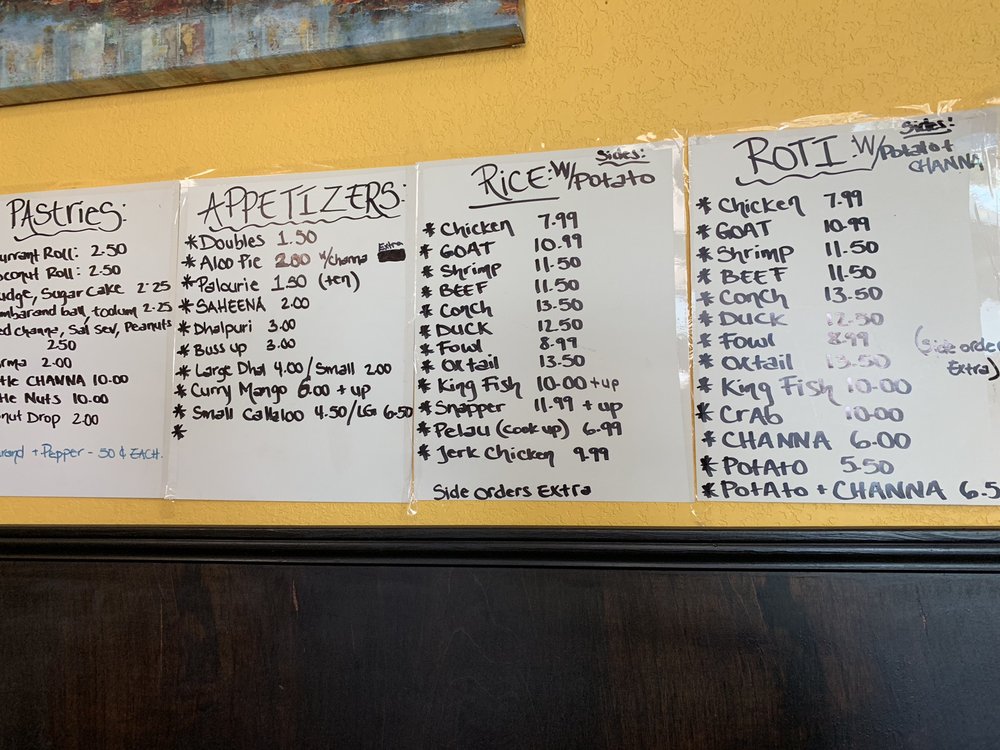 PAStries:
urrant Roll: 2.50
oconut Roll: 2.50
udge, Sugar Cake 2.25
mbarand ball, toolum 2.25
ed channa, Sal Sev, Peanuts
2.50
rma 2.00
tle CHANNA 10.00
tle Nuts 10.00
nut Drop 2.00
arand + Pepper - 50 ¢ EACH.
APPETIZERS:
* Doubles 1.50
* Aloo Pie 2.00 w/channa Extra
* Palourie 1.50 (ten)
* SAHEENA 2.00
* Dhalpuri 3.00
* Buss up 3.00
* Large Dhal 4.00/Small 2.00
* Curry Mango 6.00 + up
* Small Callaloo 4.50/LG 6.50
*
Sides:
RICE: W/Potato
* Chicken 7.99
* GOAT 10.99
* Shrimp 11.50
* BEEF 11.50
* Conch 13.50
* DUCK 12.50
* Fowl 8.99
* Oxtail 13.50
* King Fish 10.00 + up
* Snapper 11.99 + up
* Pelau (cook up) 6.99
* Jerk Chicken 9.99
Side Orders Extra
Sides:
ROTI: W/Potato +
CHANNA
* Chicken 7.99
* GOAT 10.99
* Shrimp 11.50
* BEEF 11.50
* Conch 13.50
* DUCK 12.50
* Fowl 8.99
* Oxtail 13.50
(Side order
Extra)
* King Fish 10.00
* CrAb 10.00
* CHANNA 6.00
* Potato 5.50
* Potato + CHANNA 6.5